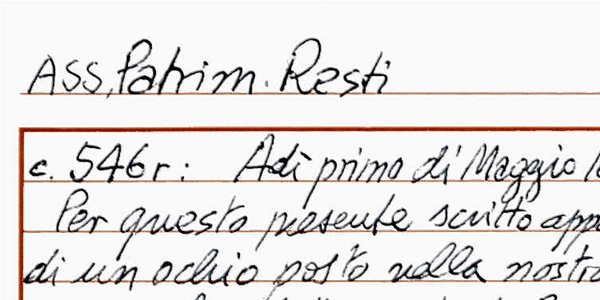 ASS, Patrim. Resti
c. 546r: Adì primo di Maggio
Per questo presente scritto
di un ochio posto nella nostra